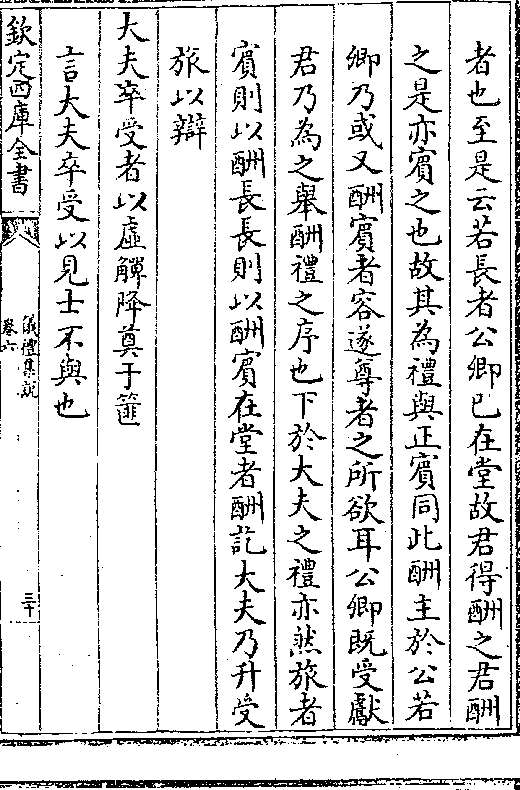 者也至是云若長者公卿已在堂故君得酬之君酬
之是亦賓之也故其為禮與正賓同此酬主於公若
卿乃或又酬賓者容遂尊者之所欲耳公卿既受獻
君乃為之舉酬禮之序也下於大夫之禮亦然旅者
賓則以酬長長則以酬賓在堂者酬訖大夫乃升受
旅以辯
大夫卒受者以虛觶降奠于篚
言大夫卒受以見士不與也
欽定四庫全書
儀禮集說
卷六
三十